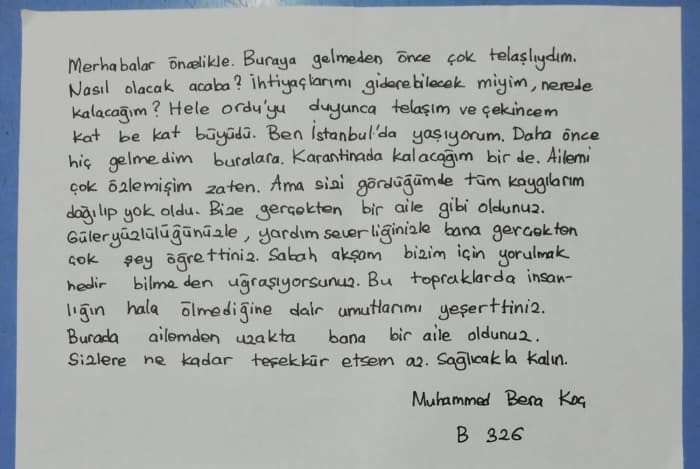 Merhabalar öncelikle. Buraya gelmeden önce çok telaşlıydım.
Nasıl olacak acaba? İhtiyaçlarımı giderebilecek miyim, nerede
kalacağım? Hele ordu'yu duyunca telaşım ve çekincem
kat be kat büyüdü. Ben İstanbul'da yaşıyorum. Daha önce
hiç gelmedim buralara. Karantinada kalacağım bir de. Ailemi
çok özlemişim zaten. Ama sizi gördüğümde tüm kaygılarım
dağılıp yok oldu. Bize gerçekten bir aile gibi oldunuz.
Güleryüzlülüğünüzle, yardım severliğinizle bana gerçekten
çok şey öğrettiniz. Sabah akşam bizim için yorulmak
nedir bilmeden uğraşıyorsunuz. Bu topraklarda insan-
lığın hala ölmediğine dair umutlarımı yeşerttiniz.
Burada ailemden uzakta bana bir aile oldunuz.
Sizlere ne kadar teşekkür etsem az. Sağlıcakla kalın.
Muhammed Bera Koç
B 326